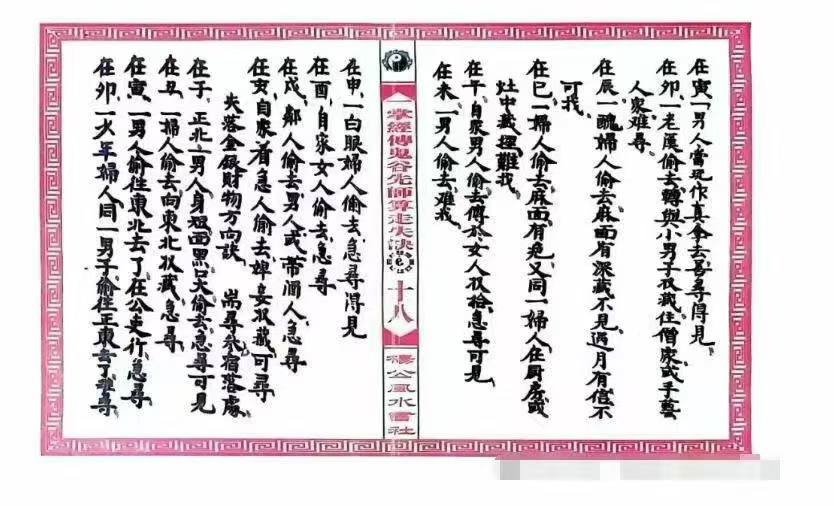 在寅、一男人當現作真拿去尋尋得見
在卯、一老漢偷去轉與小男子収藏住僧家或手藝
人家难尋
在辰、一醜婦人偷去麻面有深藏不見過月有信不
可找
在巳、一婦人偷去麻面有疤又同一婦人在厨房或
灶中藏埋難找
在午、自家男人偷去傳於女人収拾急尋可見
在未、一男人偷去、难找
掌經傳鬼谷先師算走失訣
十八
楊公風水會社
在申、一白眼婦人偷去、急尋得見
在酉、自家女人偷去、急尋
在戌、鄰人偷去男人或帶酒人、急尋
在亥、自家着急人偷去婢妾収藏、可尋
失落金銀財物方向訣 耑尋参宿落處
在子、正北一男人身短面黑口大偷去、急尋可見
在丑、一婦人偷去向東北収藏、急尋
在寅、一男人偷住東北去了在公吏行、急尋
在卯、一少年婦人同一男子偷住正東去了难尋